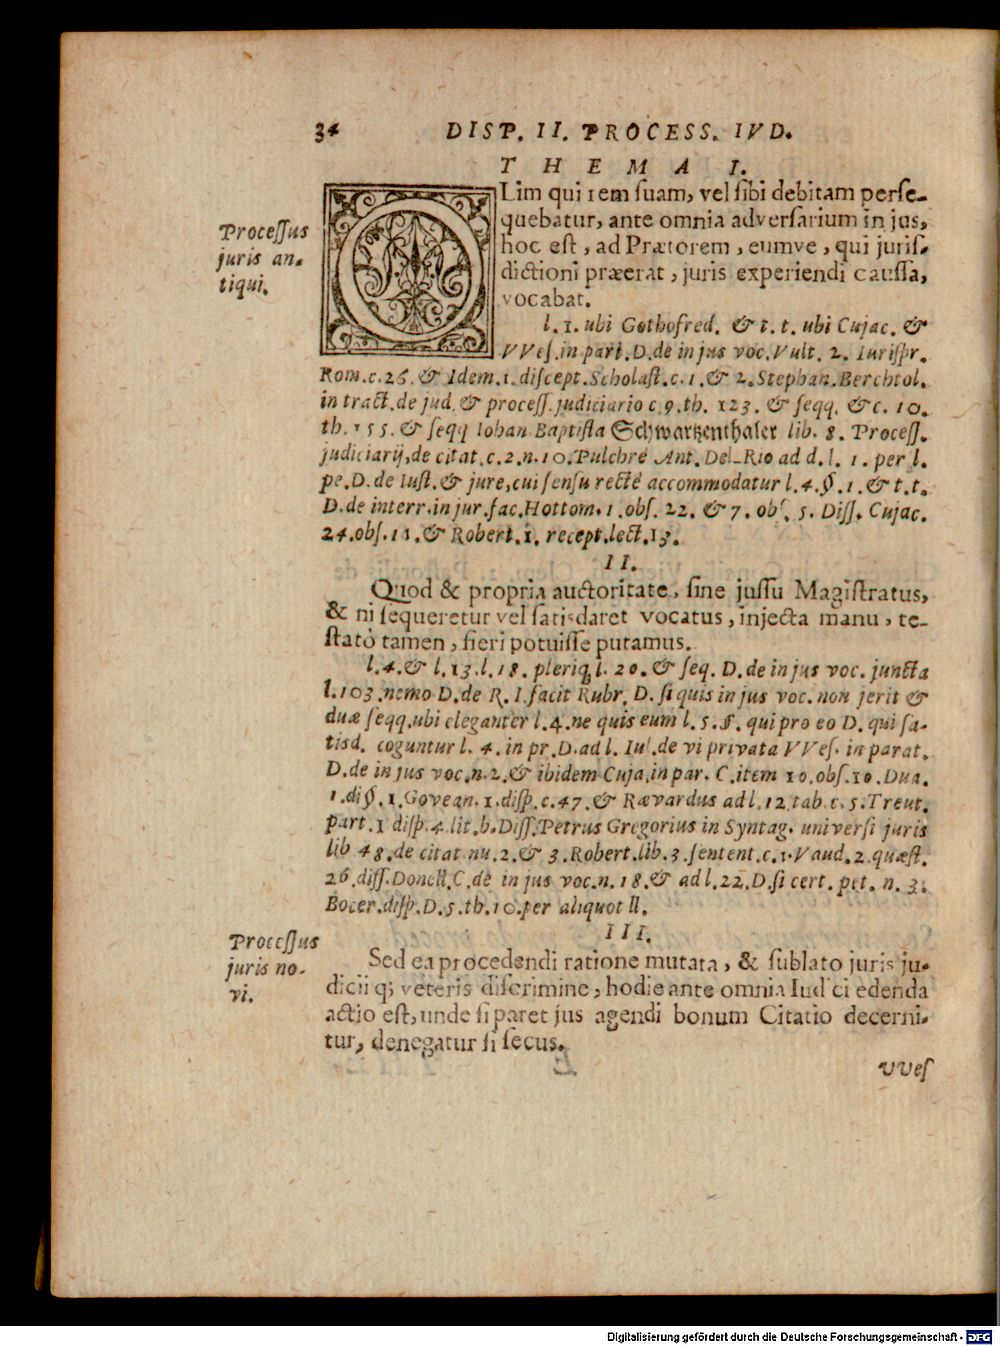 34 DISP. II. PROCESS. IVD.
THEMA I.
OLim qui rem suam, vel sibi debitam perse-
quebatur, ante omnia adversarium in jus,
hoc est, ad Prætorem, eumve, qui juris-
dictioni præerat, juris experiendi caussa,
vocabat.
Processus
juris an-
tiqui.
l. 1. ubi Gothofred. & t. t. ubi Cujac. &
VVes. in part. D. de in jus voc. Vult. 2. Iurispr.
Rom. c. 26. & Idem. 1. discept. Scholast. c. 1. & 2. Stephan. Berchtol.
in tract. de jud. & process. judiciario c. 9. th. 123. & seqq. & c. 10.
th. 155. & seqq Iohan Baptista Schwartzenthaler lib. 8. Process.
judiciarij, de citat. c. 2. n. 10. Pulchrè Ant. Del-Rio ad d. l. 1. per l.
pe. D. de Iust. & jure, cui sensu rectè accommodatur l. 4. §. 1. & t. t.
D. de interr. in jur. fac. Hottom. 1. obs. 22. & 7. obs. 5. Diss. Cujac.
24. obs. 11. & Robert. 1. recept. lect. 13.
II.
Quod & propria auctoritate, sine jussu Magistratus,
& ni sequeretur vel satisdaret vocatus, injecta manu, te-
statò tamen, fieri potuisse putamus.
l. 4. & l. 13. l. 18. pleriq; l. 20. & seq. D. de in jus voc. juncta
l. 103. nemo D. de R. I. facit Rubr. D. si quis in jus voc. non jerit &
duæ seqq. ubi eleganter l. 4. ne quis eum l. 5. §. qui pro eo D. qui sa-
tisd. coguntur l. 4. in pr. D. ad l. Iul. de vi privata VVes. in parat.
D. de in jus voc. n. 2. & ibidem Cuja. in par. C. item 10. obs. 10. Dua.
1. di §. 1. Govean. 1. disp. c. 47. & Rævardus ad l. 12 tab. c. 5. Treut.
part. 1 disp. 4. lit. b. Diss. Petrus Gregorius in Syntag. universi juris
lib 48. de citat nu. 2. & 3. Robert. lib. 3. sentent. c. 1. Vaud. 2. quæst.
26. diss. Donell. C. de in jus voc. n. 18. & ad l. 22. D. si cert. pet. n. 3.
Bocer. disp. D. 5. th. 10. per aliquot ll.
III.
Processus
juris no-
vi.
Sed ea procedendi ratione mutata, & sublato juris ju-
dicii q; veteris discrimine, hodie ante omnia Iudici edenda
actio est, unde si paret jus agendi bonum Citatio decerni-
tur, denegatur si secus.
VVes
Digitalisierung gefördert durch die Deutsche Forschungsgemeinschaft - DFG